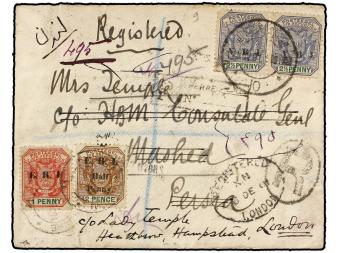 لندن
Registered
495
495
Mrs Temple
c/o HBM Consulate Genl
Mashed
Persia
598
V.R.I.
2½ PENNY
2½ PENNY
E.R.I.
1 PENNY
V.R.I.
Half
Penny
2 PENCE
REGISTERED
LONDON
R
c/o Lady Temple
Heathbrow, Hampstead, London